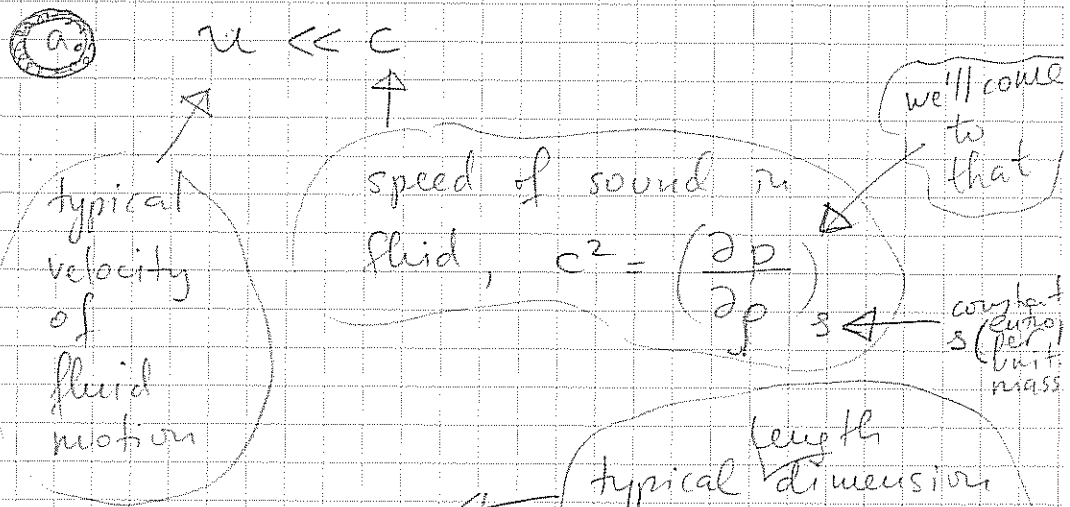 a. u << c
we'll come
to
that
typical
velocity
of
fluid
motion
speed of sound in
fluid, c² = (∂p/∂ρ)s
constant
s (
per
unit
mass
length
typical dimension